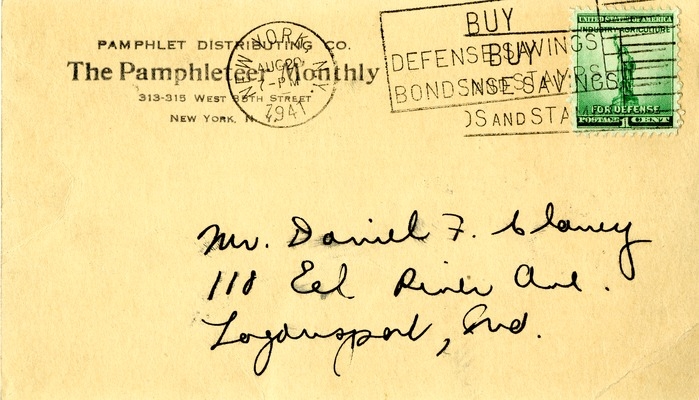 PAMPHLET DISTRIBUTING CO.
The Pamphleteer Monthly
313-315 WEST 35TH STREET
NEW YORK, N.
NEW YORK, N.Y.
AUG 20
7-PM
1941
BUY
DEFENSE SAVINGS
BONDS AND STAMPS
BUY
NSE SAVINGS
DS AND STA
UNITED STATES OF AMERICA
INDUSTRY AGRICULTURE
FOR DEFENSE
POSTAGE 1 CENT
Mr. Daniel F. Clancy
110 Eel River Ave.
Logansport, Ind.